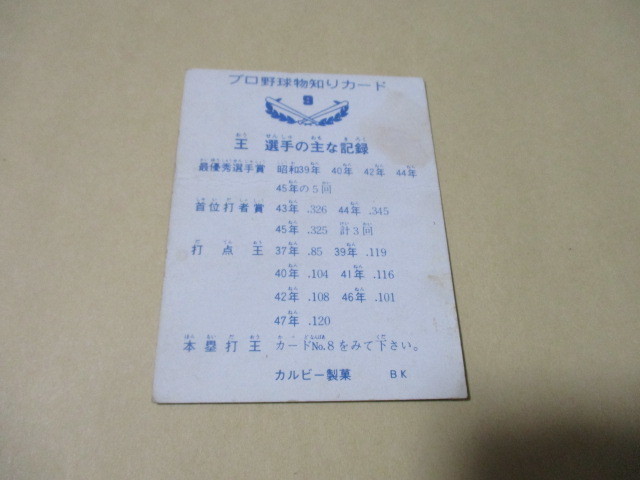 プロ野球物知りカード
9
王 選手の主な記録
最優秀選手賞 昭和39年 40年 42年 44年
45年の5回
首位打者賞 43年 .326 44年 .345
45年 .325 計3回
打点王 37年 .85 39年 .119
40年 .104 41年 .116
42年 .108 46年 .101
47年 .120
本塁打王 カードNo.8をみて下さい。
カルビー製菓 BK